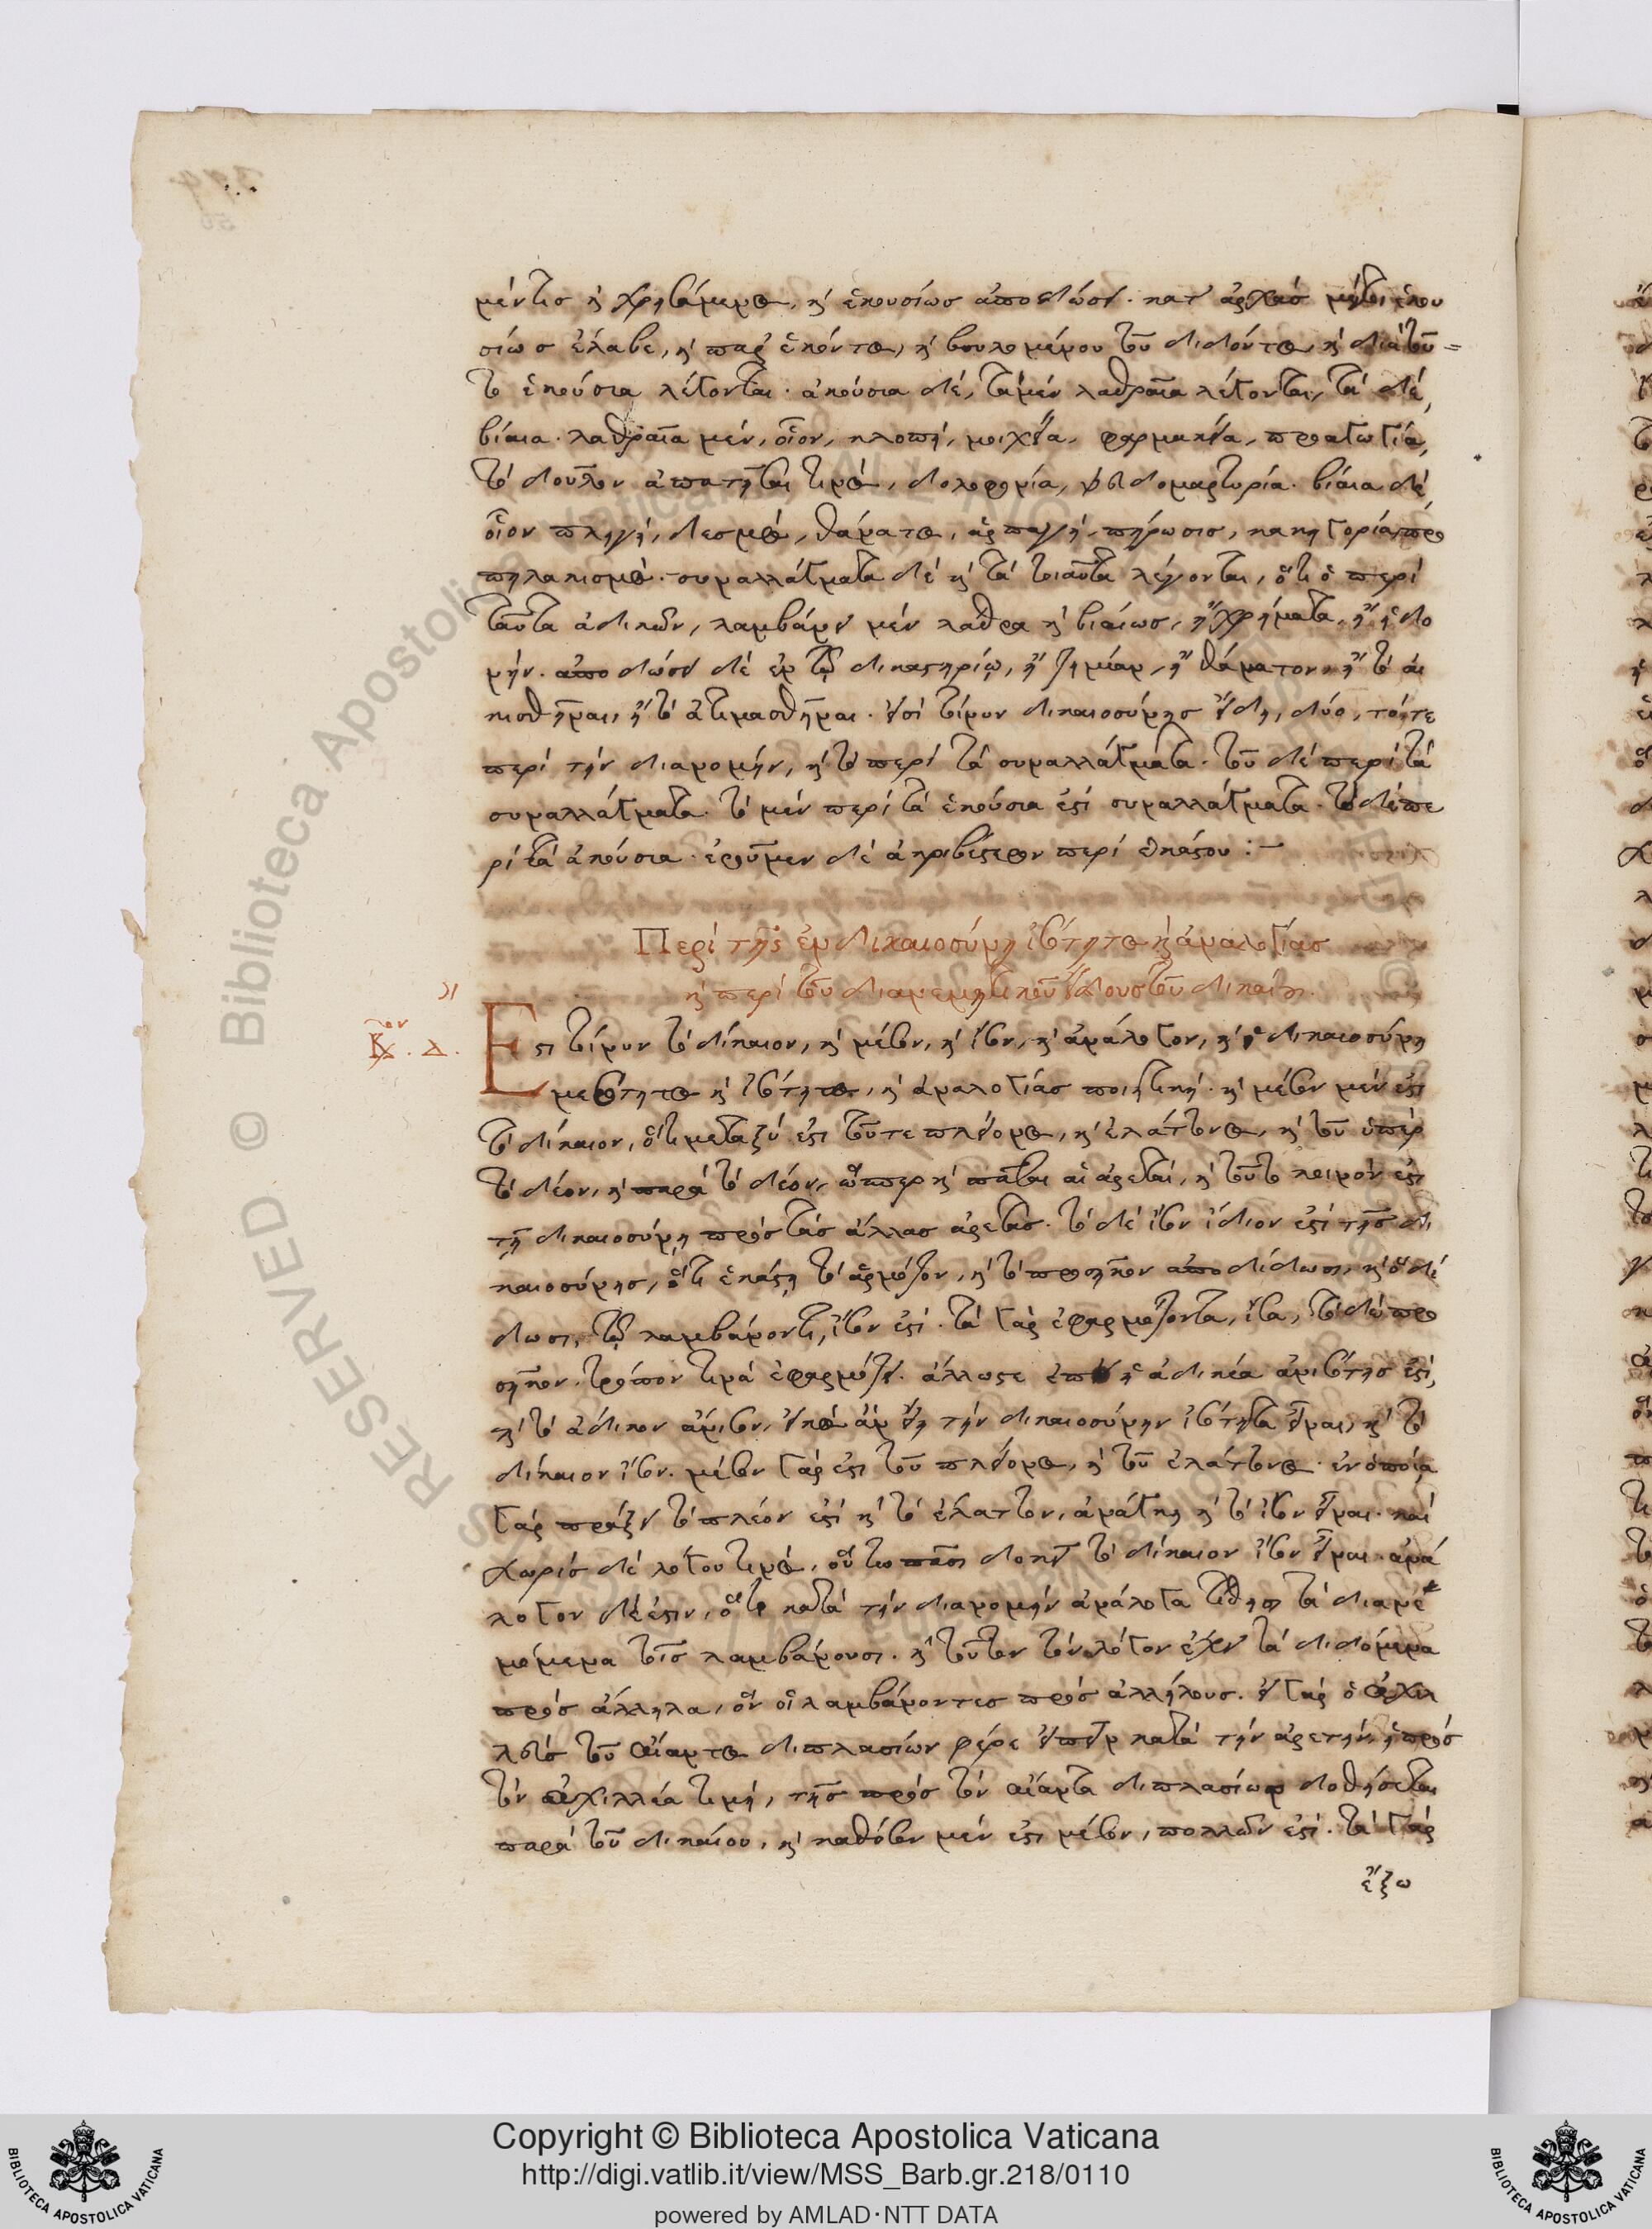 μέντες ἢ χρησάμενος, καὶ ἑκουσίως ἀποδώσει. κατ' ἀρχὰς μέντοι ἑκου
σίως ἔλαβε, καὶ παρ' ἑκόντος, καὶ βουλομένου τοῦ διδόντος, καὶ διὰ τοῦ=
το ἑκούσια λέγονται. ἀκούσια δέ, τὰ μὲν λαθραῖα λέγονται, τὰ δὲ,
βίαια. λαθραῖα μέν, οἷον, κλοπή, μοιχεία, φαρμακεία, προαγωγία,
τὸ δοῦλον ἀπατῆσαι τινός, δολοφονία, ψευδομαρτυρία. βίαια δὲ,
οἷον πληγή, δεσμός, θάνατος, ἁρπαγή, πήρωσις, κακηγορία, προ
πηλακισμός. συναλλάγματα δὲ καὶ τὰ τοιαῦτα λέγονται, ὅτι ὁ περὶ
ταῦτα ἀδικῶν, λαμβάνει μὲν λάθρα καὶ βιαίως, ἢ χρήματα, ἢ ἡδο
νήν. ἀποδώσει δὲ ἐν τῷ δικαστηρίῳ, ἢ ζημίαν, ἢ θάνατον, ἢ τὸ αἰ
κισθῆναι, ἢ τὸ ἀτιμασθῆναι. εἰσὶ τοίνυν δικαιοσύνης εἴδη, δύο, τότε
περὶ τὴν διανομήν, καὶ τὸ περὶ τὰ συναλλάγματα. τοῦ δὲ περὶ τὰ
συναλλάγματα. τὸ μὲν περὶ τὰ ἑκούσια ἐστὶ συναλλάγματα. τὸ δὲ πε
ρὶ τὰ ἀκούσια. ἐροῦμεν δὲ ἀκριβέστερον περὶ ἑκάστου :-
Περὶ τῆς ἐν δικαιοσύνῃ ἰσότητος καὶ ἀναλογίας
καὶ περὶ τοῦ διανεμητικοῦ εἴδους τοῦ δικαίου.
Κ. Δ.
Εστι τοίνυν τὸ δίκαιον, καὶ μέσον, καὶ ἴσον, καὶ ἀνάλογον, καὶ ἡ δικαιοσύνη
μεσότητος καὶ ἰσότητος, καὶ ἀναλογίας ποιητική. καὶ μέσον μέν ἐστι
τὸ δίκαιον, ὅτι μεταξύ ἐστι τοῦτε πλείονος, καὶ ἐλάττονος, καὶ τοῦ ὑπὲρ
τὸ δέον, καὶ παρὰ τὸ δέον, ὥσπερ καὶ πᾶσαι αἱ ἀρεταί, καὶ τοῦτο κοινόν ἐστι
τῇ δικαιοσύνῃ πρὸς τὰς ἄλλας ἀρετάς. τὸ δὲ ἴσον ἴδιον ἐστὶ τῆς δι
καιοσύνης, ὅτι ἑκάστῃ τὸ ἁρμόζον, καὶ τὸ προσῆκον ἀποδίδωσι, καὶ ὃ δέ
δωσι, τῷ λαμβάνοντι, ἴσον ἐστί. τὰ γὰρ ἐφαρμόζοντα, ἴσα, τὸ δὲ προ
σῆκον. τρόπον τινὰ ἐφαρμόζει. ἄλλωστε ἐπεὶ ἡ ἀδικία ἀνισότης ἐστί,
καὶ τὸ ἄδικον ἄνισον, εἰκὸς ἂν εἴη τὴν δικαιοσύνην ἰσότητα εἶναι, καὶ τὸ
δίκαιον ἴσον. μέσον γάρ ἐστι τοῦ πλείονος, καὶ τοῦ ἐλάττονος. ἐν ὁποίᾳ
γὰρ πράξει τὸ πλέον ἐστὶ καὶ τὸ ἔλαττον, ἀνάγκη καὶ τὸ ἴσον εἶναι. καὶ
χωρὶς δὲ λόγου τινός, οὕτω πᾶσι δοκεῖ τὸ δίκαιον ἴσον εἶναι. ἀνά
λογον δέ ἐστιν, ὅτι κατὰ τὴν διανομὴν ἀνάλογα τίθησι τὰ διανε
μόμενα τοῖς λαμβάνουσι. καὶ τοῦτον τὸν λόγον ἔχει τὰ διδόμενα
πρὸς ἄλληλα, ὃν οἱ λαμβάνοντες πρὸς ἀλλήλους. εἰ γὰρ ὁ ἀχιλ
λεὺς τοῦ αἴαντος διπλασίων φέρε εἰπεῖν κατὰ τὴν ἀρετήν, ἡ πρὸς
τὸν ἀχιλλέα τιμή, τῆς πρὸς τὸν αἴαντα διπλασίων δοθήσεται
παρὰ τοῦ δικαίου, καὶ καθόσον μέν ἐστι μέσον, πολλῶν ἐστί. τὰ γὰρ
ἔξω
Copyright © Biblioteca Apostolica Vaticana
http://digi.vatlib.it/view/MSS_Barb.gr.218/0110
powered by AMLAD·NTT DATA